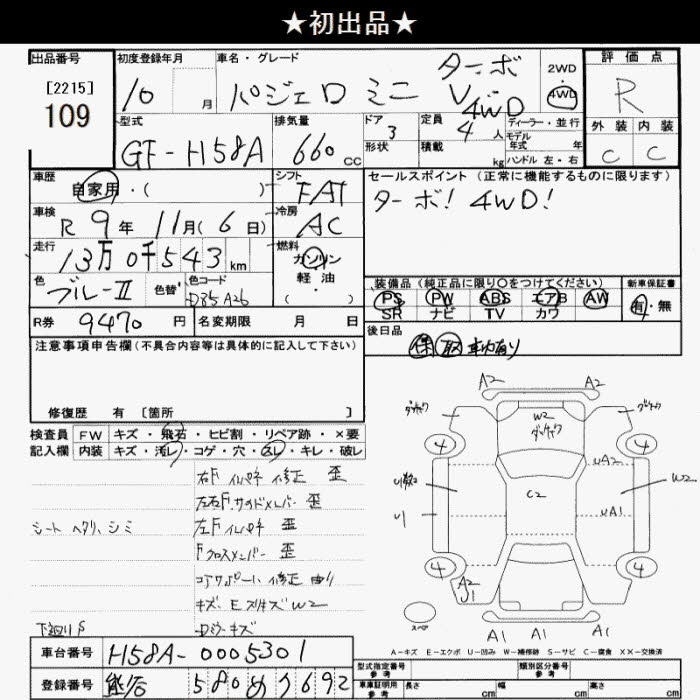 ★初出品★
出品番号
[2215]
109
初度登録年月
10 月
車名・グレード
パジェロ ミニ ターボ V 4WD
2WD
4WD
評価点
R
外装 内装
C C
型式
GF-H58A
排気量
660 cc
ドア
3
形状
定員
4 人
積載
kg
ディーラー・並行
モデル
年式 年
ハンドル 左・右
車歴
自家用・( )
シフト
FAT
車検
R 9年 11月( 6日)
冷房
AC
走行
13万0千543 km
燃料
ガソリン
軽油
( )
色
ブルーII
色替
色コード
R券
9470 円
名変期限 月 日
セールスポイント (正常に機能するものに限ります)
ターボ! 4WD!
装備品 (純正品に限り○をつけてください)
PS PW ABS エアB AW
SR ナビ TV カワ
新車保証書
有・無
後日品
保 取 車内有り
注意事項申告欄 (不具合内容等は具体的に記入して下さい)
修復歴 有 [箇所 ]
検査員
記入欄
FW キズ・飛石・ヒビ割・リペア跡・×要
内装 キズ・汚レ・コゲ・穴・スレ・キレ・破レ
右Fインサイド修正 歪
左右Fサイドメンバー 歪
シート ヘタリ、シミ
左Fインサイド 歪
Fクロスメンバー 歪
コアサポート 修正 曲り
下廻りS
A2 A2
W2
4 4
UA2
W2
C2
U1
UA1
4 4
A2
U1
スペア
A1 A1
A-キズ E-エクボ U-凹み W-補修跡 S-サビ C-腐食 XX-交換済
車台番号
H58A-0005301
登録番号
型式指定番号
参考
類別区分番号
参考
車庫証明用
参考
長さ cm 幅 cm 高さ cm